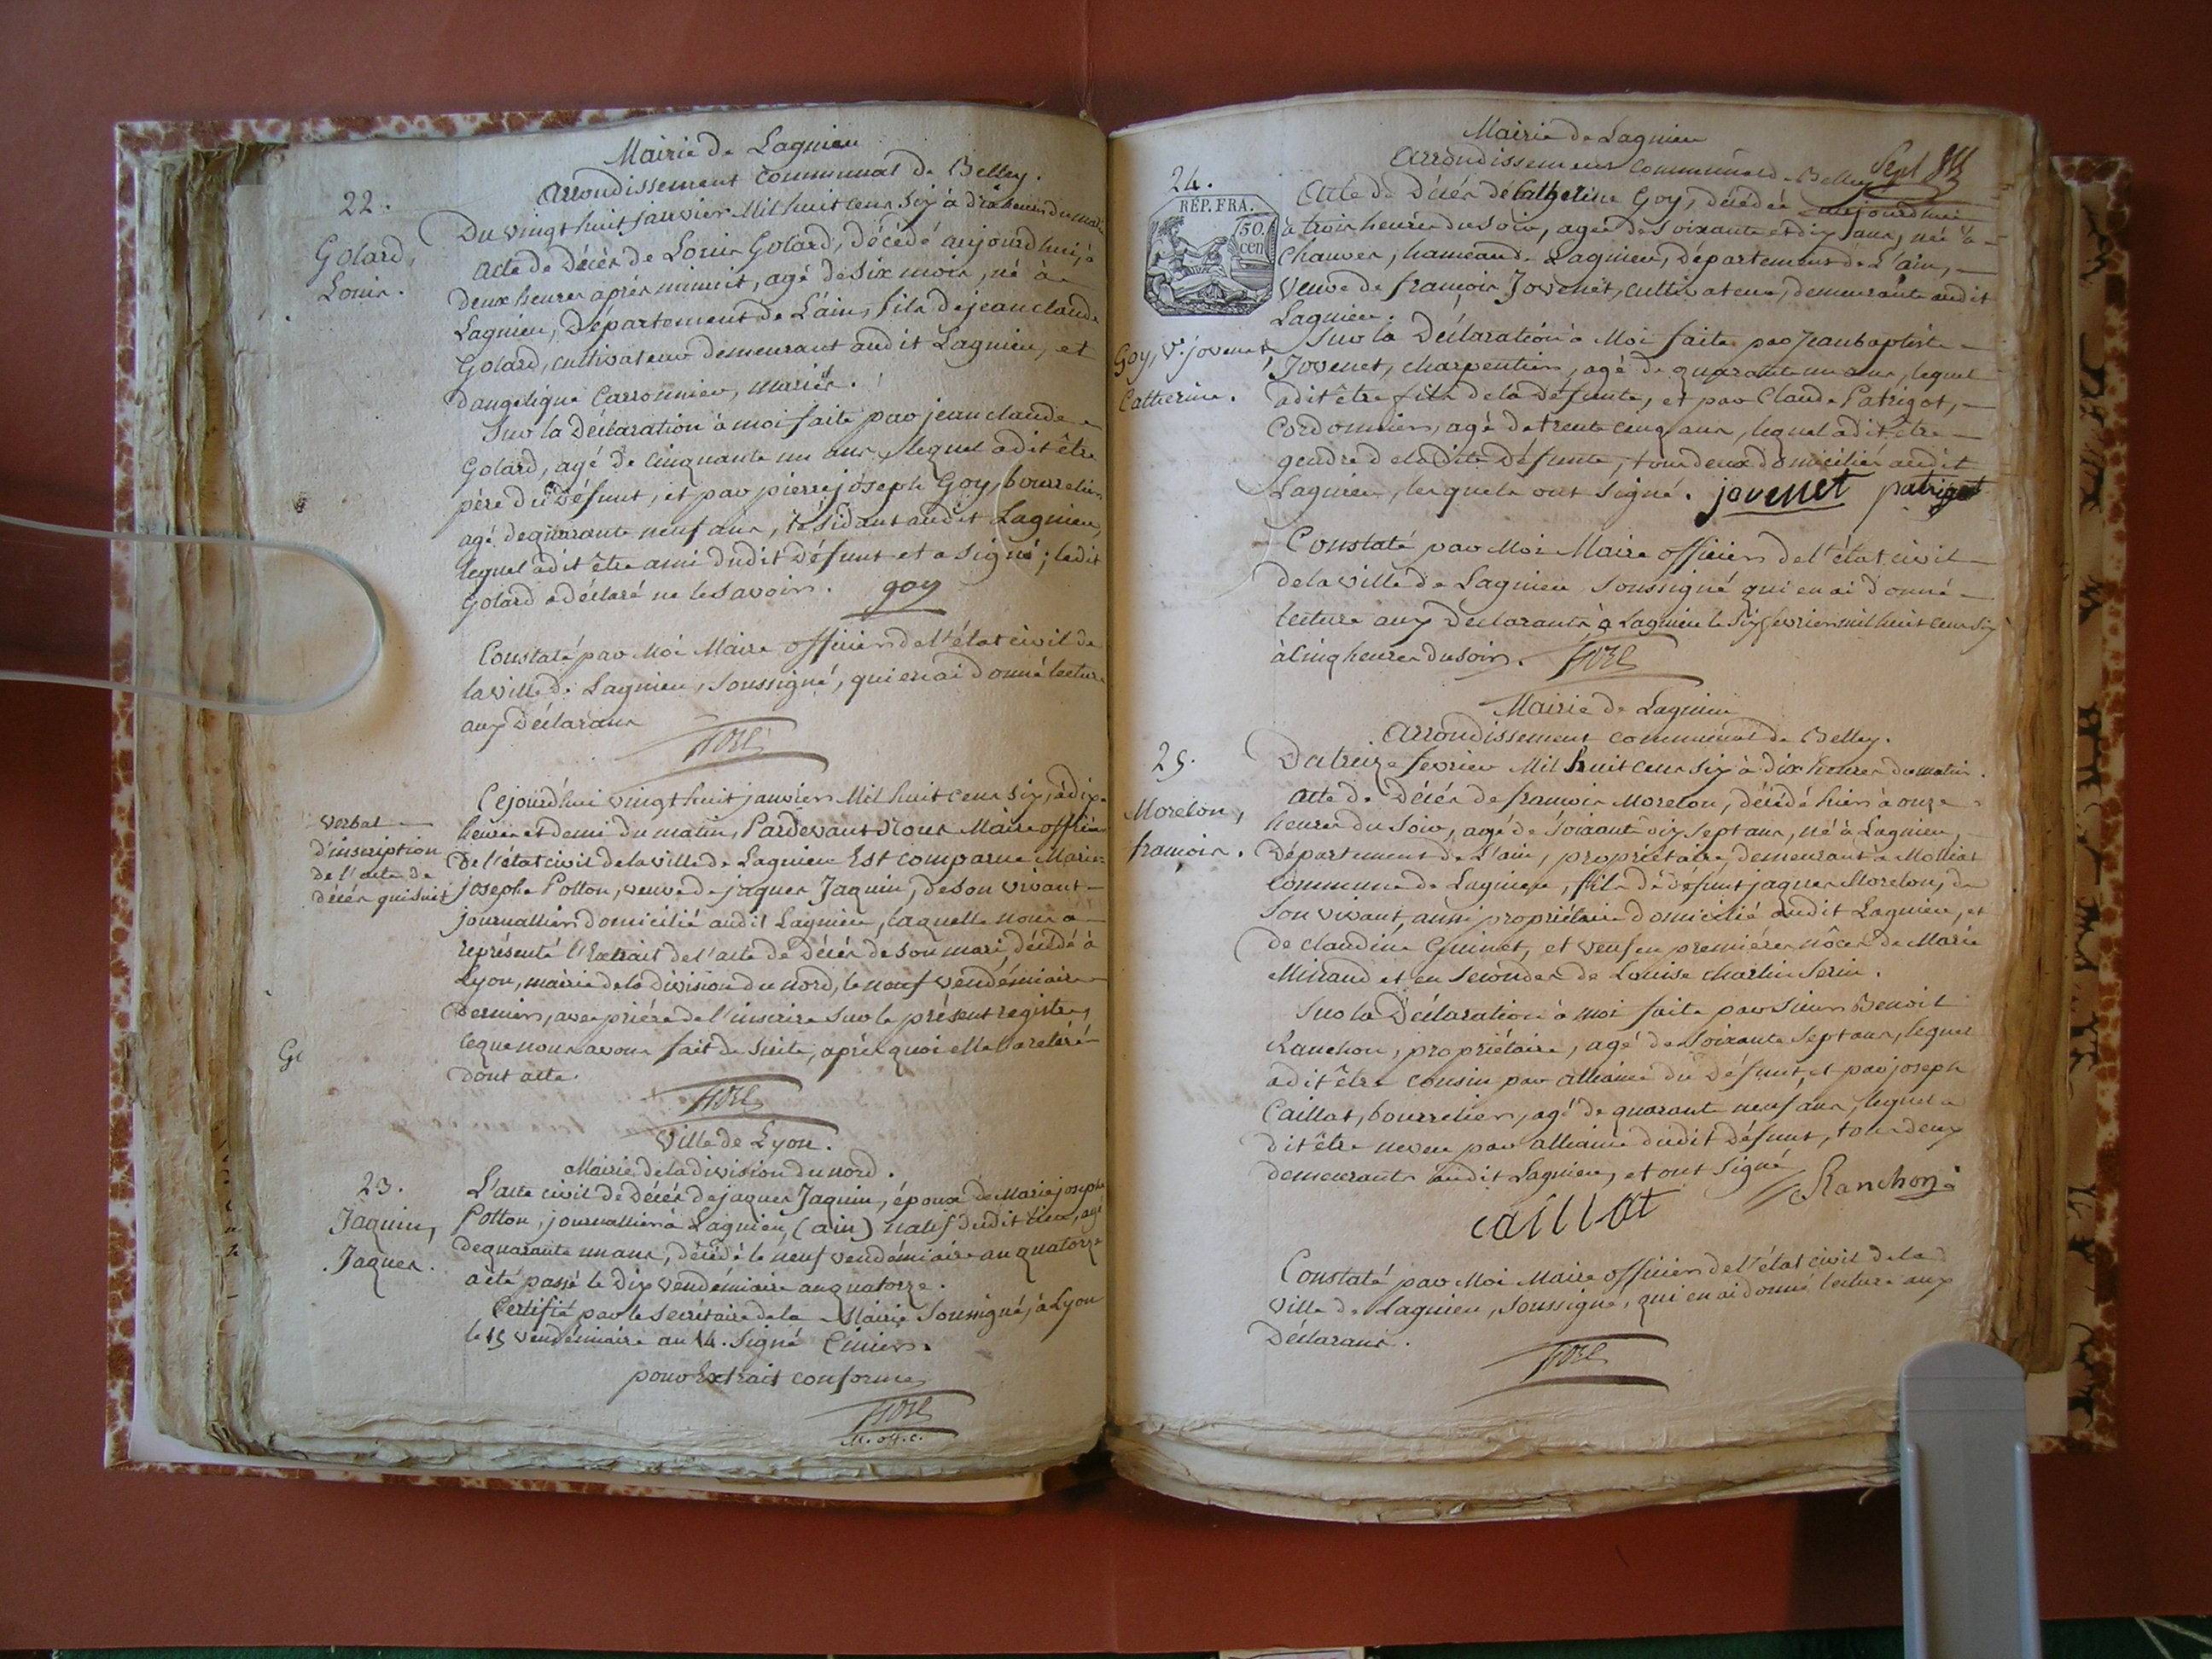 Mairie de Lagnieu
arrondissement communal de Belley.
22.
Golard,
Louis.
Du vingt huit janvier Mil huit cens six à dix heures du matin
acte de Décès de Louis Golard, décédé aujourd'hui, à
deux heures après minuit, agé de six mois, né à
Lagnieu, Département de L'ain, fils de jean claude
Golard, cultivateur demeurant audit Lagnieu, et
d'angelique Carronnier, mariés.
Sur la Déclaration à moi faite par jean claude
Golard, agé de cinquante un ans, lequel a dit être
père du Défunt, et par pierre joseph Goy, bourrelier
agé de quarante neuf ans, résidant audit Lagnieu,
lequel a dit être ami dudit Défunt et a signé; ledit
Golard a déclaré ne le savoir. goy
Constaté par Moi Maire officier de l'état civil de
la ville de Lagnieu, soussigné, qui en ai donné lecture
aux Déclarans
verbal
d'inscription
de l'acte de
décès qui suit
Cejourd'hui vingt huit janvier Mil huit cens six, à dix
heures et demi du matin, Pardevant Nous Maire officier
De l'état civil de la ville de Lagnieu Est comparue Marie
josephe Potton, veuve de jaques Jaquin, de son vivant
journallier domicilié audit Lagnieu, laquelle nous a
représenté l'Extrait de l'acte de Décès de son mari, décédé à
Lyon, mairie de la division du nord, le neuf vendémiaire
Dernier, avec prière de l'inscrire sur le présent registre,
ce que nous avons fait de suite, après quoi elle l'a retiré
dont acte.
Ville de Lyon.
Mairie de la division du nord.
23.
Jaquin,
Jaques.
L'acte civil de Décès de jaques Jaquin, époux de Marie josephe
Potton, journallier à Lagnieu, (ain) natif dudit lieu, agé
de quarante un ans, décédé le neuf vendémiaire an quatorze
a été passé le Dix vendémiaire an quatorze.
Certifié par le secrétaire de la Mairie Soussigné, à Lyon
le 15 vendémiaire an 14. Signé
pour Extrait conforme
M. off. c.
Mairie de Lagnieu
arrondissement communal de Belley
Sept
24.
RÉP. FRA.
50.
cen
Goy, Ve. jovenet,
Catherine.
Acte de Décès de Catherine Goy, décédée aujourd'hui
à trois heures du soir, agée de soixante et dix ans, née à
Chauves, hameau de Lagnieu, Département de L'ain,
Veuve de françois Jovenet, cultivateur, demeurante audit
Lagnieu.
Sur la Déclaration à Moi faite par Jean baptiste
Jovenet, charpentier, agé de quarante un ans, lequel
a dit être fils de la Défunte, et par Claude Patrigot,
Cordonnier, agé de trente cinq ans, lequel a dit être
gendre de la Dite Défunte, tous deux domiciliés audit
Lagnieu, lesquels ont signé. jovenet patrigot
Constaté par Moi Maire officier de l'état civil
de la ville de Lagnieu soussigné qui en ai donné
lecture aux Déclarants à Lagnieu le six fevrier mil huit cens six
à Cinq heures du soir.
Mairie de Lagnieu
arrondissement communal de Belley.
25.
Morelon,
francois.
Du treize fevrier Mil huit cens six à dix heures du matin.
acte de Décès de francois Morelon, décédé hier à onze
heures du soir, agé de soixante dix sept ans, né à Lagnieu,
Département de L'ain, propriétaire, demeurant à Mollias
Commune de Lagnieu, fils de défunt jaques Morelon, de
son vivant, aussi propriétaire domicilié audit Lagnieu, et
de claudine Guinet, et veuf en premières nôces de Marie
Miraud et en secondes de Louise Charlin Serin.
Sur la Déclaration à moi faite par sieur Benoit
Ranchon, propriétaire, agé de soixante sept ans, lequel
a dit être cousin par alliance du Défunt, et par joseph
Caillat, bourrelier, agé de quarante neuf ans, lequel a
dit être neveu par alliance dudit Défunt, tous deux
demeurants audit Lagnieu, et ont signé Ranchon
caillat
Constaté par Moi Maire officier de l'état civil de la
Ville de Lagnieu, soussigné, qui en ai donné lecture aux
Déclarans.